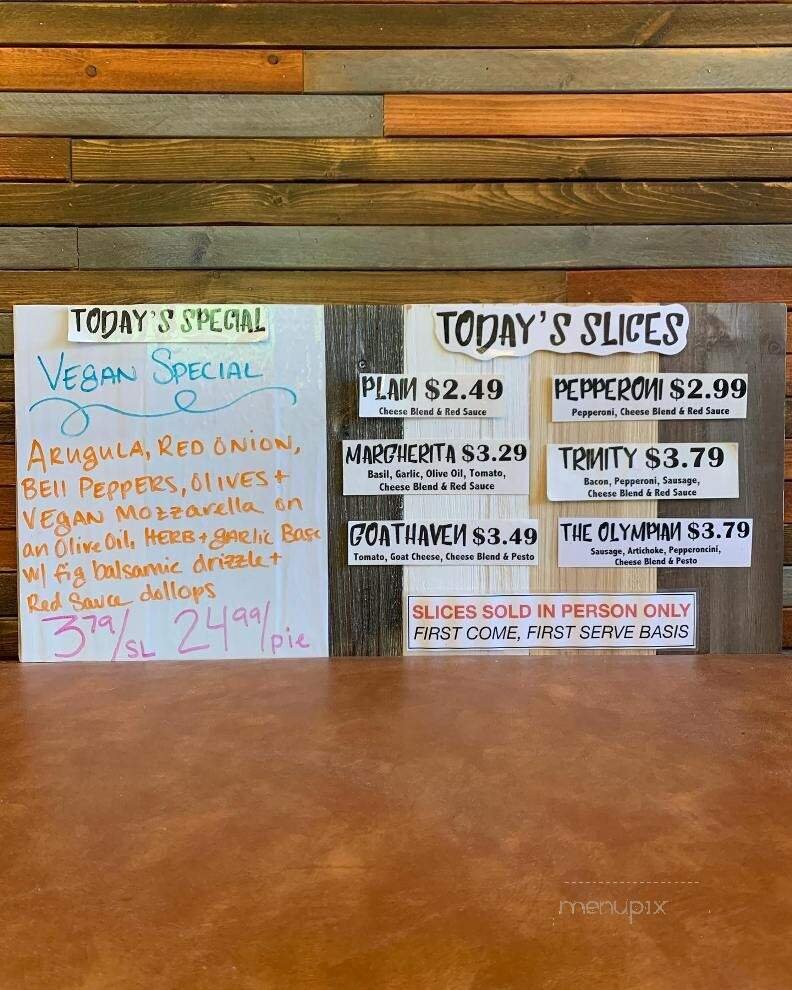 TODAY'S SPECIAL
VEGAN SPECIAL
ARUGULA, RED ONION,
BEll PEPPERS, OlIVES +
VEGAN Mozzarella on
an Olive Oil, HERB + gARlic Base
w/ fig balsamic drizzle +
Red Sauce dollops
3 79/SL 24 99/pie
TODAY'S SLICES
PLAIN $2.49
Cheese Blend & Red Sauce
PEPPERONI $2.99
Pepperoni, Cheese Blend & Red Sauce
MARGHERITA $3.29
Basil, Garlic, Olive Oil, Tomato,
Cheese Blend & Red Sauce
TRINITY $3.79
Bacon, Pepperoni, Sausage,
Cheese Blend & Red Sauce
GOATHAVEN $3.49
Tomato, Goat Cheese, Cheese Blend & Pesto
THE OLYMPIAN $3.79
Sausage, Artichoke, Pepperoncini,
Cheese Blend & Pesto
SLICES SOLD IN PERSON ONLY
FIRST COME, FIRST SERVE BASIS
menupix